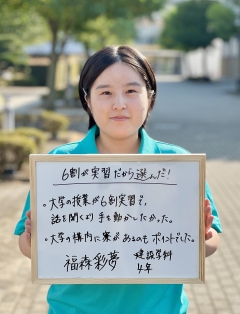 6割が実習だから選んだ!
・大学の授業が6割実習で、
話を聞くより手を動かしたかった。
・大学の構内に寮があるのもポイントでした。
福森彩夢 建設学科
4年